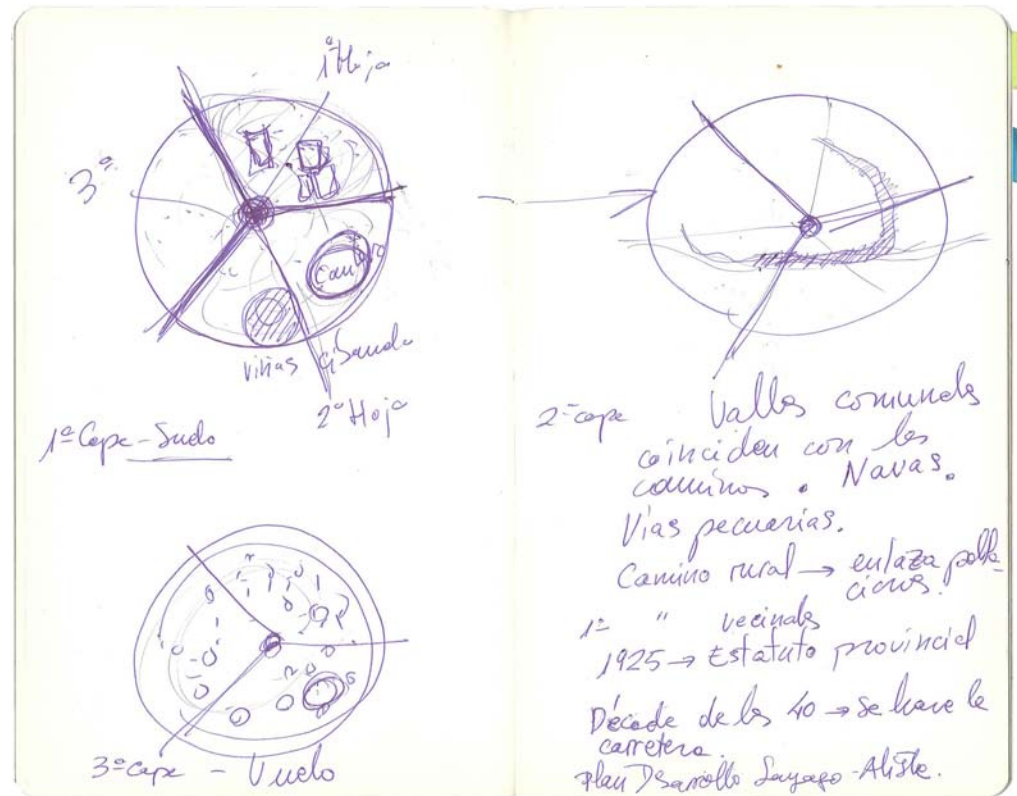 1ª Hoja
3ª
Cantero
viñas
2ª Hoja
1ª Capa - Suelo
3ª capa - Vuelo
2ª capa
Valles comunales
coinciden con los
caminos. Navas.
Vías pecuarias.
Camino rural → enlaza pobla-
ciones.
1º " vecinales
1925 → Estatuto provincial
Década de los 40 → se hace la
carretera.
Plan Desarrollo Sayago-Aliste.